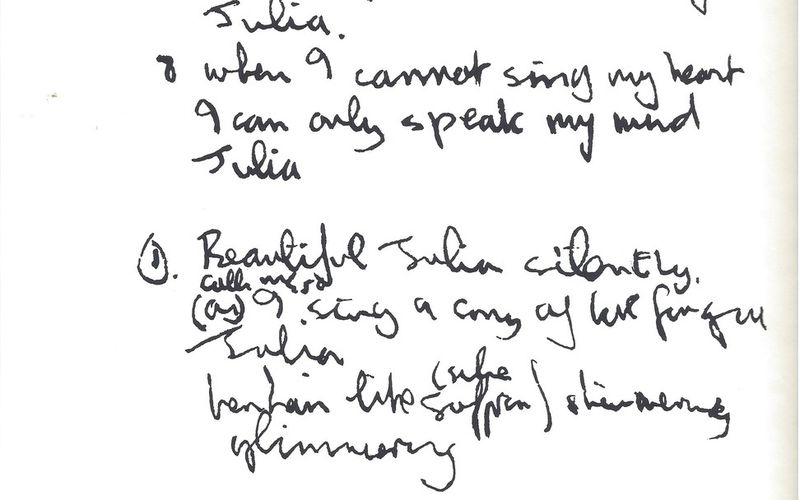 Julia.
8 when I cannot sing my heart
I can only speak my mind
Julia
①. Beautiful Julia silently.
calls me so
(as) I sing a song of love for you
Julia
her hair like (silke
glimmering